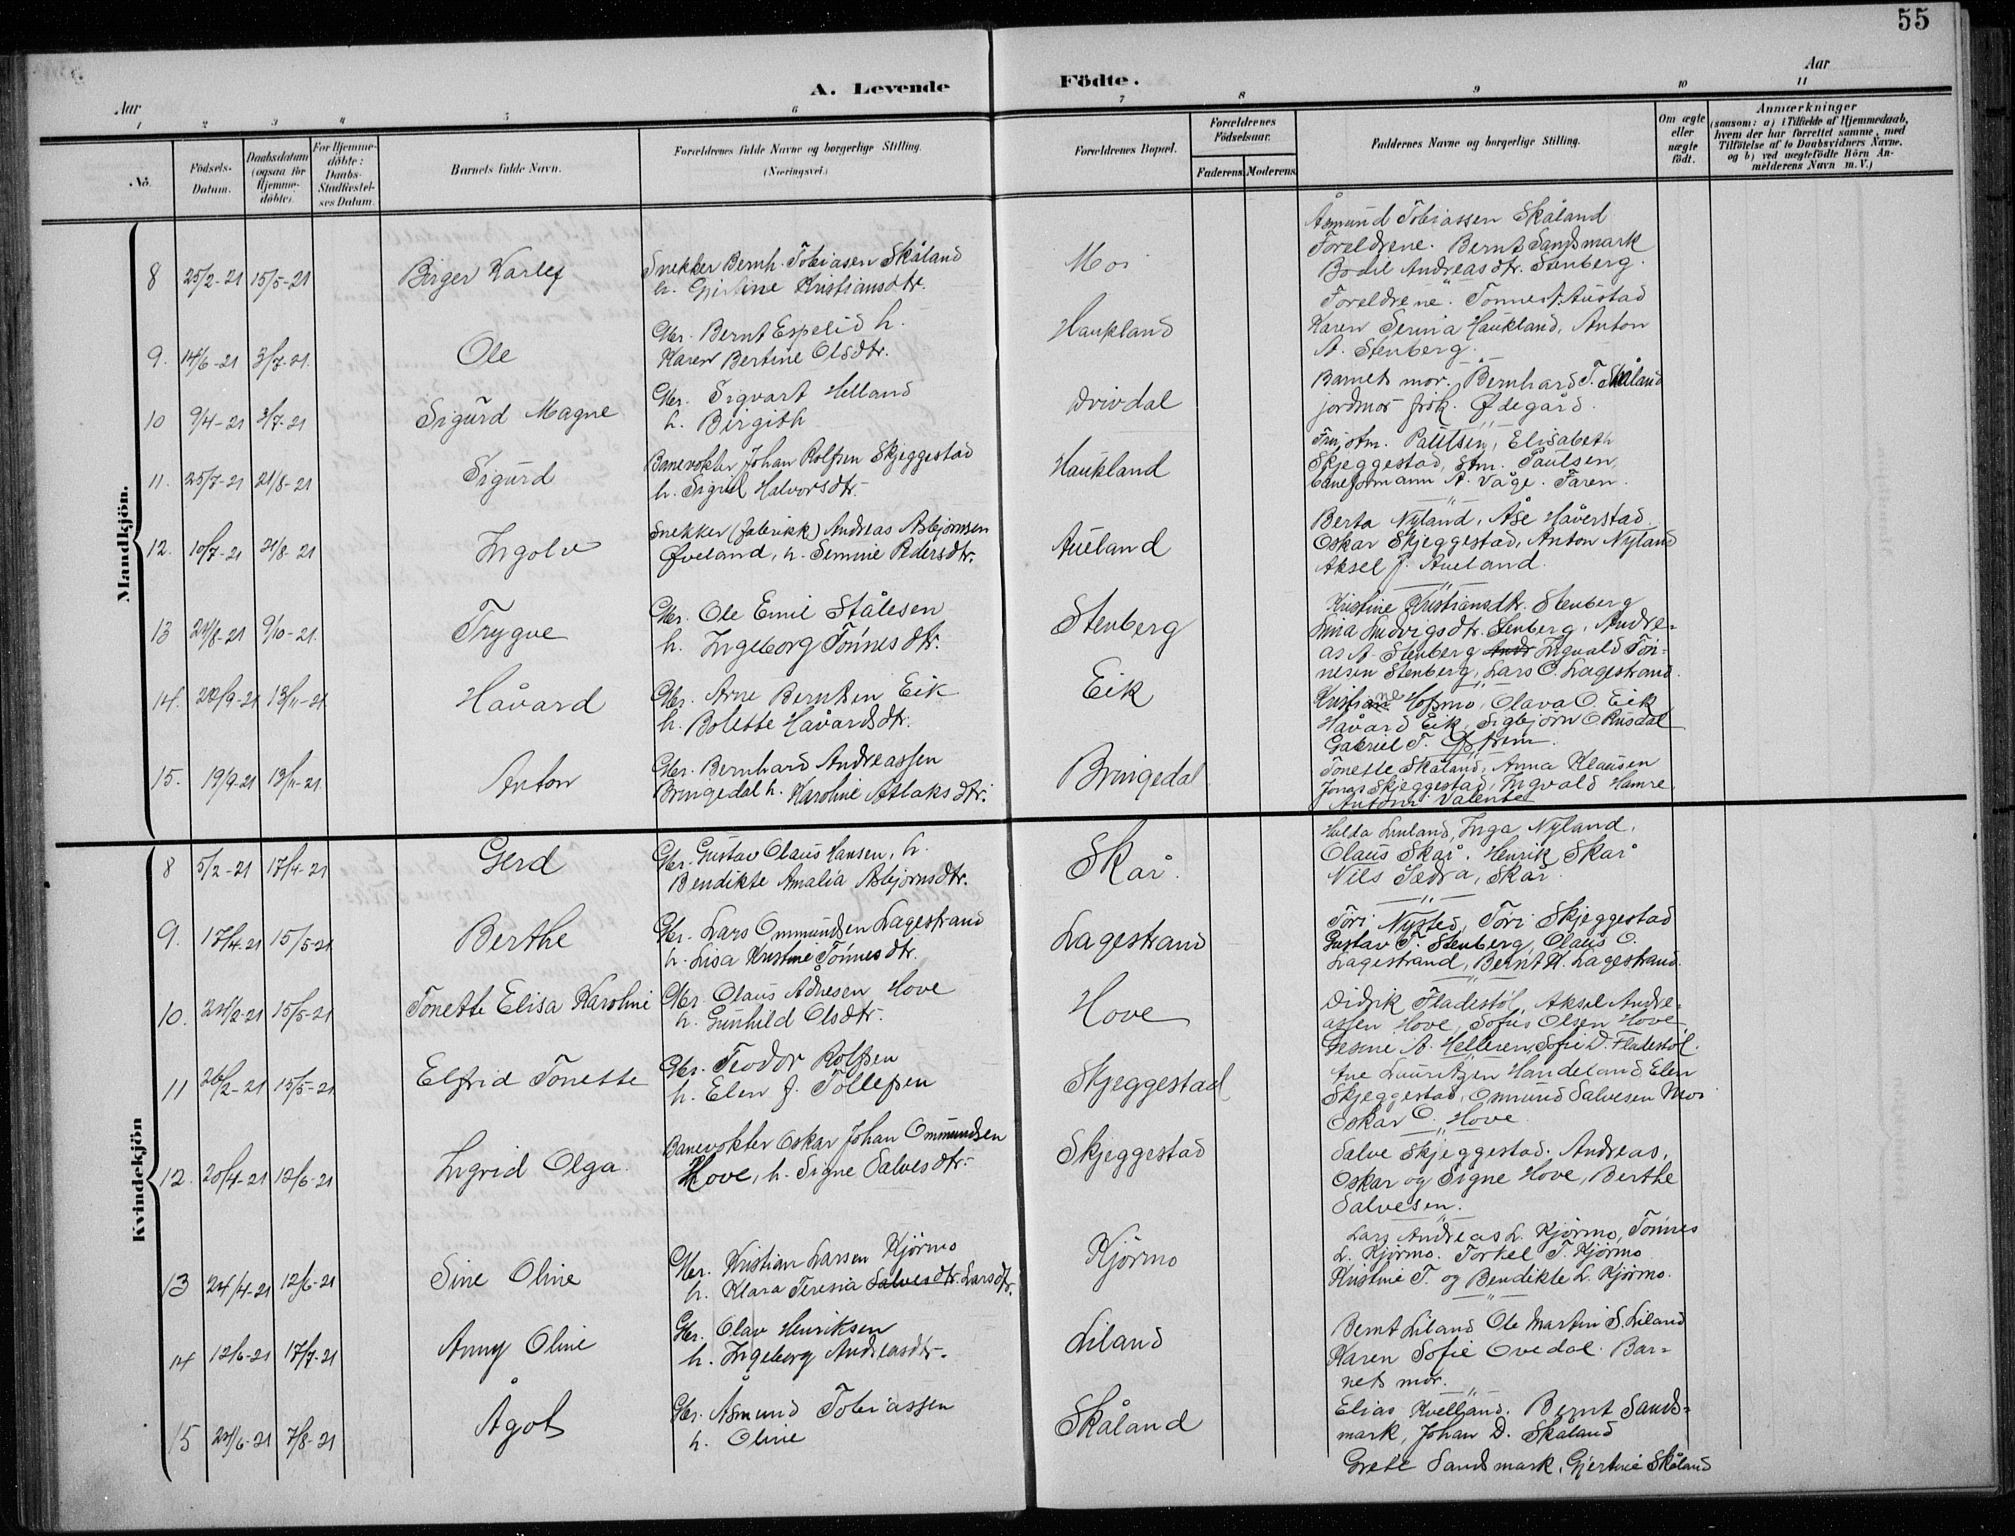 55
Aar
A. Levende
Födte.
Aar
1 2 3 4 5 6 7 8 9 10 11
No.
Födsels-Datum.
Daabsdatum (ogsaa for Hjemmedöbte).
For Hjemmedöbte: Daabs-Stadfæstelses Datum.
Barnets fulde Navn.
Forældrenes fulde Navne og borgerlige Stilling. (Næringsvei.)
Forældrenes Bopæl.
Forældrenes Födselsaar.
Faderens.
Moderens.
Faddernes Navne og borgerlige Stilling.
Om ægte eller uægte födt.
Anmærkninger
(saasom: a) i Tilfælde af Hjemmedaab, hvem der har forrettet samme, med Tilföielse af to Daabsvidners Navne, og b) ved uægtefödte Börn Anmelderens Navn m. V.)
Mandkjön.
Åsmund Tobiassen Skåland
8 25/2-21 15/5-21 Birger Karlef
Snekker Bernh. Tobiasen Skåland
h. Gjertine Kristiansdtr.
Moi
Foreldrene. Bernt Sandsmark
Bodil Andreasdtr. Stenberg.
9. 14/6-21 3/7-21. Ole
Gbr. Bernt Espelid h.
Karen Bertine Olsdtr.
Haukland
Foreldrene. Tonnes A. Austad
Karen Serina Haukland, Anton
A. Stenberg.
10 9/4-21 3/7-21 Sigurd Magne
Gbr. Sigvart Helland
h. Birgith
Drivdal
Barnets mor. Bernhard T. Skåland
jordmor frøk. Ødegård.
11. 25/7-21 21/8-21 Sigurd
Banevokter Johan Rolfsen Skjeggestad
h. Sigrid Halvorsdtr.
Haukland
Fru stm. Paulsen, Elisabeth
Skjeggestad, Stm. Paulsen,
baneformann A. Våge. Faren.
12. 10/7-21 21/8-21 Ingolv
Snekker (fabrikk) Andreas Asbjørnsen
Øveland, h. Semine Pedersdtr.
Aueland
Berta Nyland, Åse Håverstad
Oskar Skjeggestad, Anton Nyland
Aksel J. Aueland.
13 21/8-21 9/10-21. Trygve
Gbr. Ole Emil Stålesen
h. Ingeborg Tönnesdtr.
Stenberg
Kristine Kristiansdtr. Stenberg
Lina Ludvigsdtr. Stenberg, Andre-
as A. Stenberg Andr Ingvald Tön-
nesen Stenberg, Lars O. Lagestrand.
14. 22/9-21 13/11-21 Håvard
Gbr. Arne Berntsen Eik
h. Bolette Håvardsdtr.
Eik
Kristiane Hofsmo, Olava O. Eik
Håvard Eik, Sigbjörn O Rusdal
Gabriel T.
15. 19/9-21 13/11-21. Anton
Gbr. Bernhard Andreassen
Bringedal h. Karoline Atlaksdtr.
Bringedal
Tonette Skåland, Anna Klausen
Jonas Skjeggestad, Ingvald Hamre
Antoni Valentes
Kvindekjön
8 5/2-21 17/4-21 Gerd
Gbr. Gustav Olaus Hansen, h.
Bendikte Amalia Asbjørnsdtr.
Skår.
Hulda Liuland, Inga Nyland,
Olaus Skår, Henrik Skår
Nils Sædra, Skår.
9. 17/4-21 15/5-21 Berthe
Gbr. Lars Ommundsen Lagestrand
h. Lisa Kristine Tönnesdtr.
Lagestrand
Tori Nysted, Tori Skjeggestad
Gustav T. Stenberg, Olaus O.
Lagestrand, Bernt H. Lagestrand.
10. 24/2-21 15/5-21 Tonette Elisa Karoline
Gbr. Olaus Ådnesen Hove
h. Gunhild Olsdtr.
Hove
Didrik Fladestöl, Aksel Andre-
assen Hove, Sofus Olsen Hove,
Gesine A. Helleren, Sofie D. Fladestöl.
11 26/2-21 15/5-21 Elfrid Tonette
Gbr. Teodor Rolfsen
h. Elen J. Tollefsen
Skjeggestad
Ane Lauritzen Handeland, Elen
Skjeggestad, Ommund Salvesen Moi
Oskar O. Hove
12. 20/4-21 12/6-21 Ingrid Olga.
Banevokter Oskar Johan Ommundsen
Hove, h. Signe Salvesdtr.
Skjeggestad
Salve Skjeggestad. Andreas,
Oskar og Signe Hove, Berthe
Salvesen.
13 24/4-21 12/6-21 Sine Oline
Gbr. Kristian Larsen Kjörmo
h. Klara Teresia Salvesdtr. Larsdtr.
Kjörmo
Lars Andreas L. Kjörmo, Tönnes
L. Kjörmo. Torkel T. Kjörmo
Kristine T. og Bendikte L. Kjörmo.
14 12/6-21 17/7-21 Anny Oline
Gbr. Olav Henriksen
h. Ingeborg Andreasdtr.
Liland
Bernt Liland Ole Martin S. Liland
Karen Sofie Ovedal. Bar-
nets mor.
15 24/6-21 7/8-21 Ågot
Gbr. Åsmund Tobiassen
h. Oline
Skåland
Elias Kvelland. Bernt Sands-
mark, Johan D. Skåland
Grete Sandsmark, Gjertine Skåland